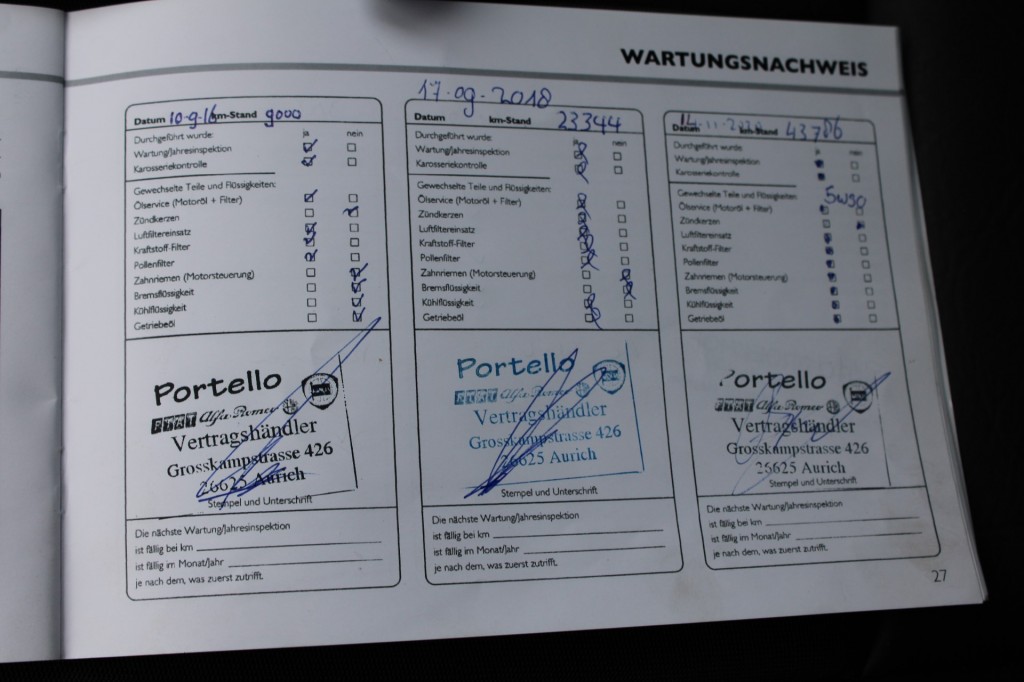 WARTUNGSNACHWEIS
Datum 10-9-16 km-Stand 9000
Durchgeführt wurde: ja nein
Wartung/Jahresinspektion
Karosseriekontrolle
Gewechselte Teile und Flüssigkeiten:
Ölservice (Motoröl + Filter)
Zündkerzen
Luftfiltereinsatz
Kraftstoff-Filter
Pollenfilter
Zahnriemen (Motorsteuerung)
Bremsflüssigkeit
Kühlflüssigkeit
Getriebeöl
Portello
FIAT Alfa Romeo
Vertragshändler
Grosskampstrasse 426
26625 Aurich
Stempel und Unterschrift
Die nächste Wartung/Jahresinspektion
ist fällig bei km
ist fällig im Monat/Jahr
je nach dem, was zuerst zutrifft.
17.09.2018
Datum km-Stand 23344
Durchgeführt wurde: ja nein
Wartung/Jahresinspektion
Karosseriekontrolle
Gewechselte Teile und Flüssigkeiten:
Ölservice (Motoröl + Filter)
Zündkerzen
Luftfiltereinsatz
Kraftstoff-Filter
Pollenfilter
Zahnriemen (Motorsteuerung)
Bremsflüssigkeit
Kühlflüssigkeit
Getriebeöl
Portello
FIAT Alfa Romeo
Vertragshändler
Grosskampstrasse 426
26625 Aurich
Stempel und Unterschrift
Die nächste Wartung/Jahresinspektion
ist fällig bei km
ist fällig im Monat/Jahr
je nach dem, was zuerst zutrifft.
Datum km-Stand
Durchgeführt wurde: ja nein
Wartung/Jahresinspektion
Karosseriekontrolle
Gewechselte Teile und Flüssigkeiten:
5W30
Ölservice (Motoröl + Filter)
Zündkerzen
Luftfiltereinsatz
Kraftstoff-Filter
Pollenfilter
Zahnriemen (Motorsteuerung)
Bremsflüssigkeit
Kühlflüssigkeit
Getriebeöl
Portello
FIAT Alfa Romeo
Vertragshändler
Grosskampstrasse 426
26625 Aurich
Stempel und Unterschrift
Die nächste Wartung/Jahresinspektion
ist fällig bei km
ist fällig im Monat/Jahr
je nach dem, was zuerst zutrifft.
27